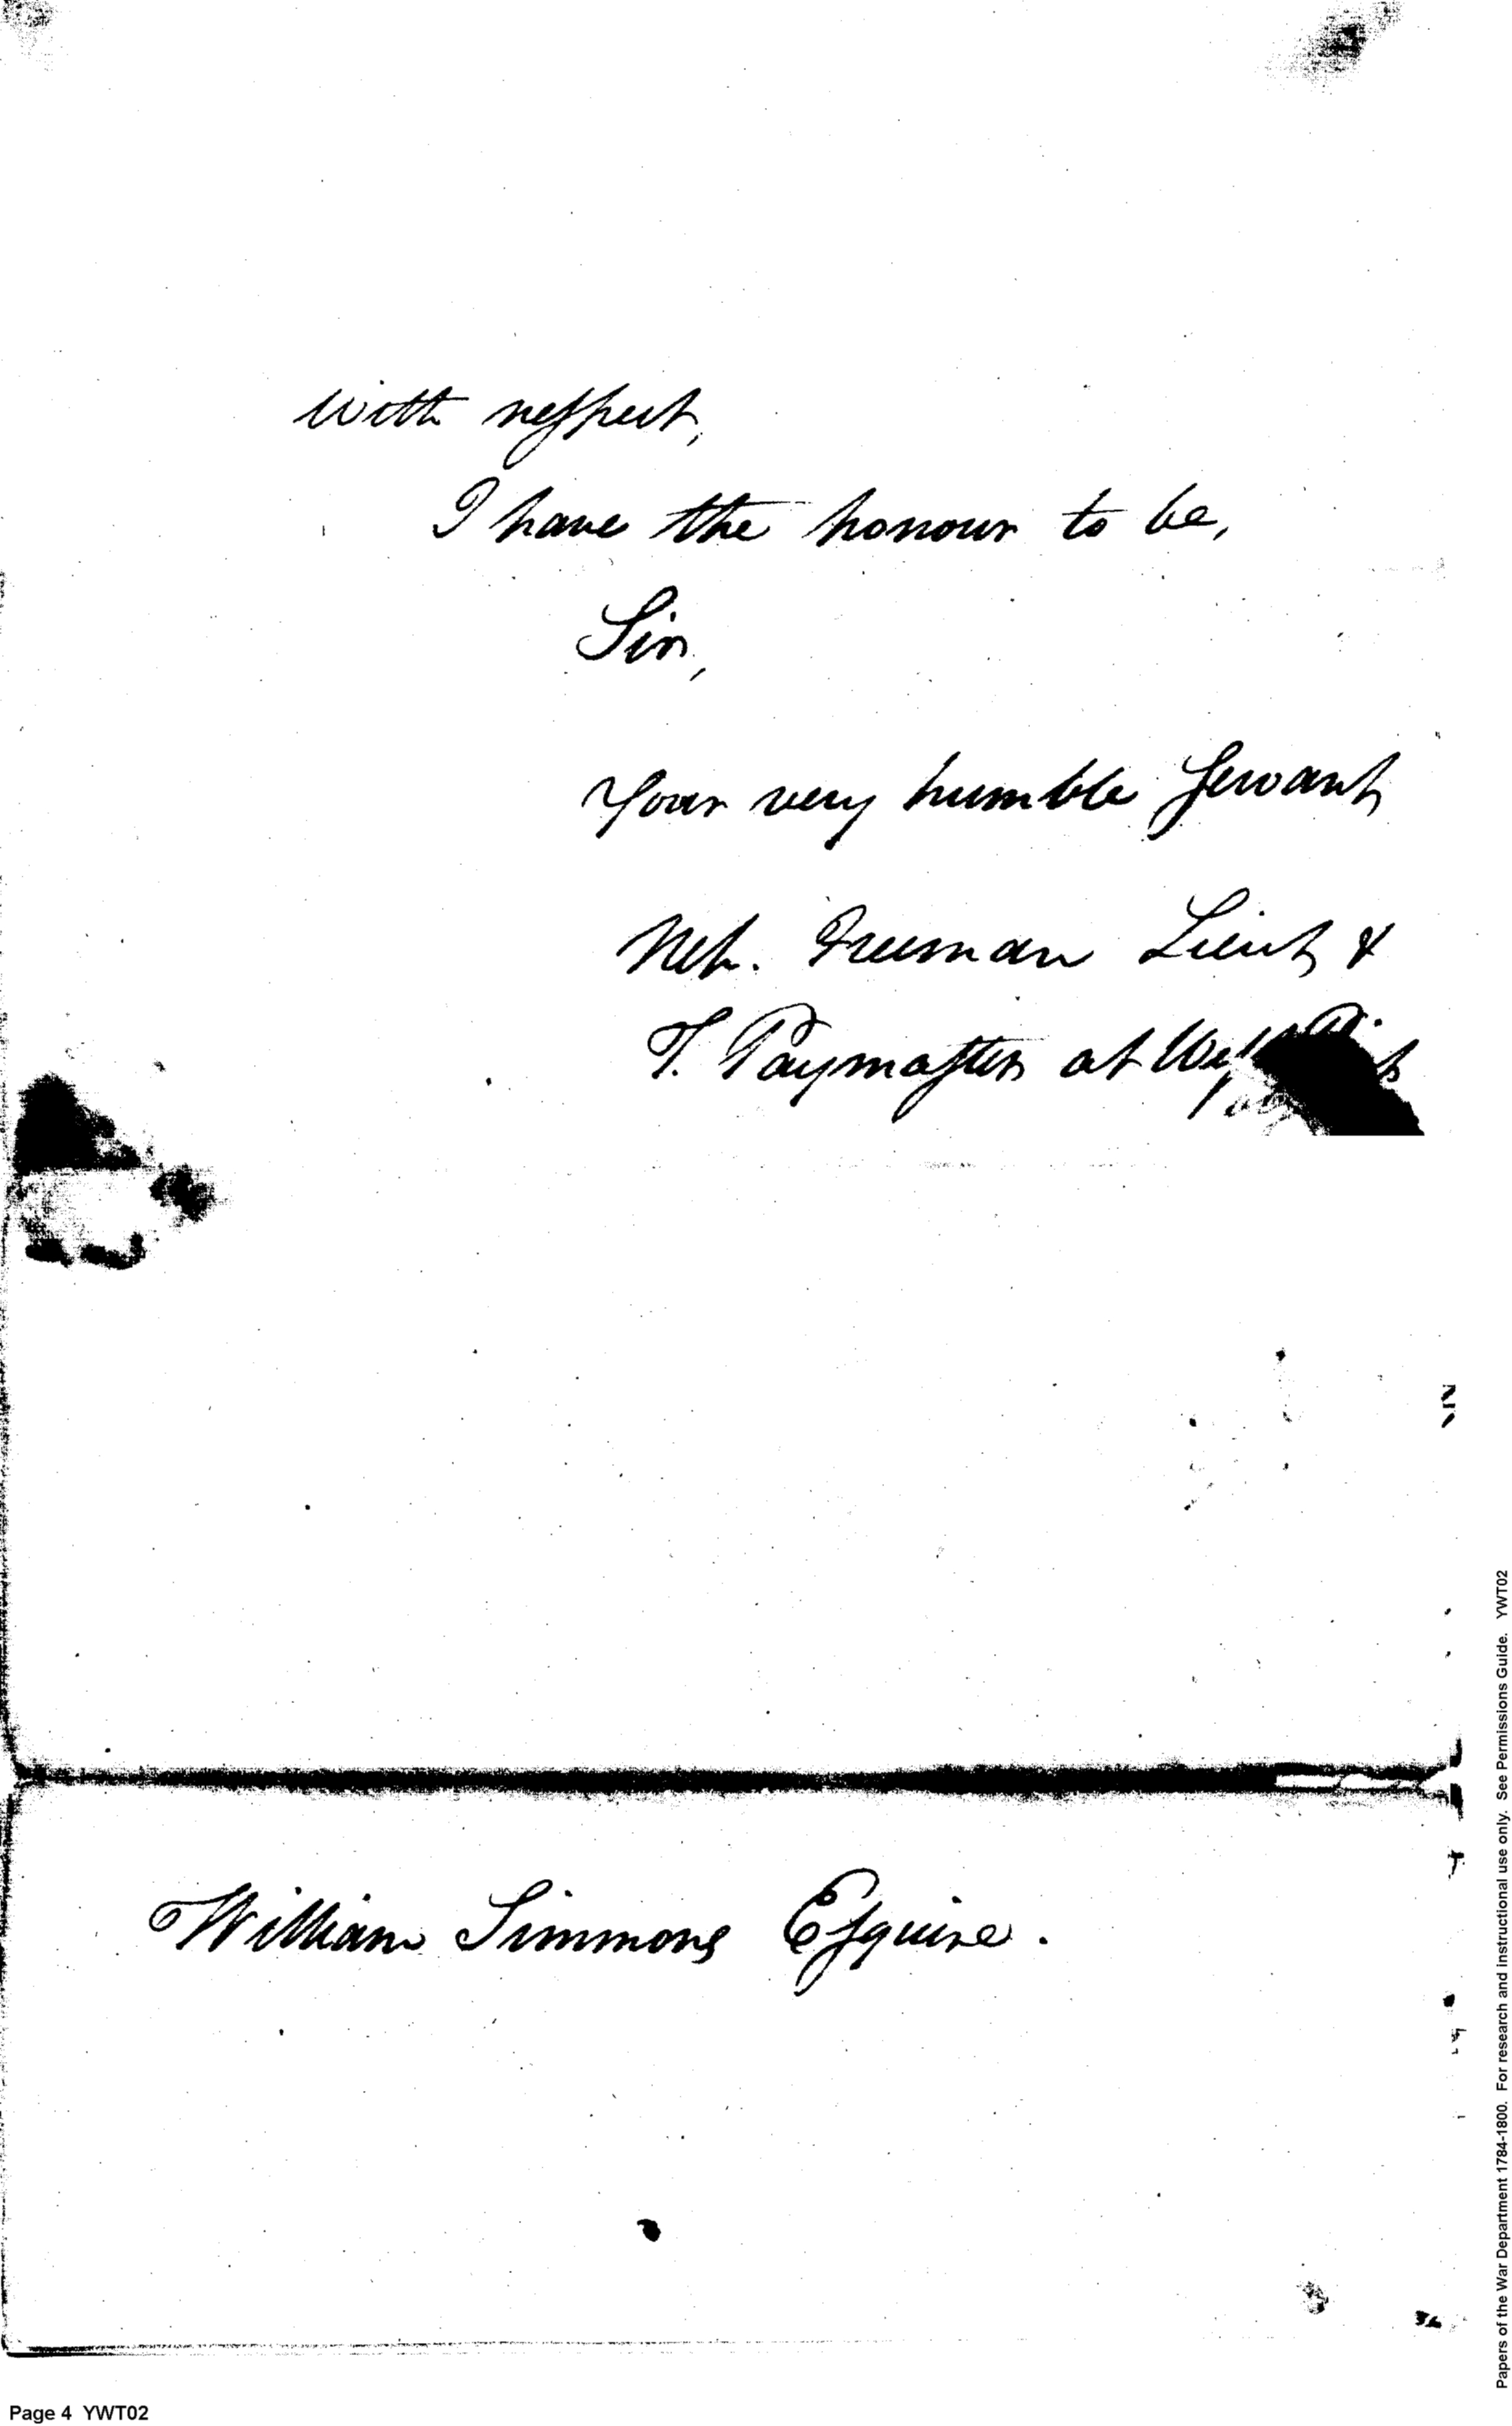 with respect,
I have the honour to be,
Sir,
Your very humble Servant
Neh. Freeman Lieut &
T. Paymaster at West
William Simmons Esquire.
Page 4 YWT02
Papers of the War Department 1784-1800. For research and instructional use only. See Permissions Guide. YWT02